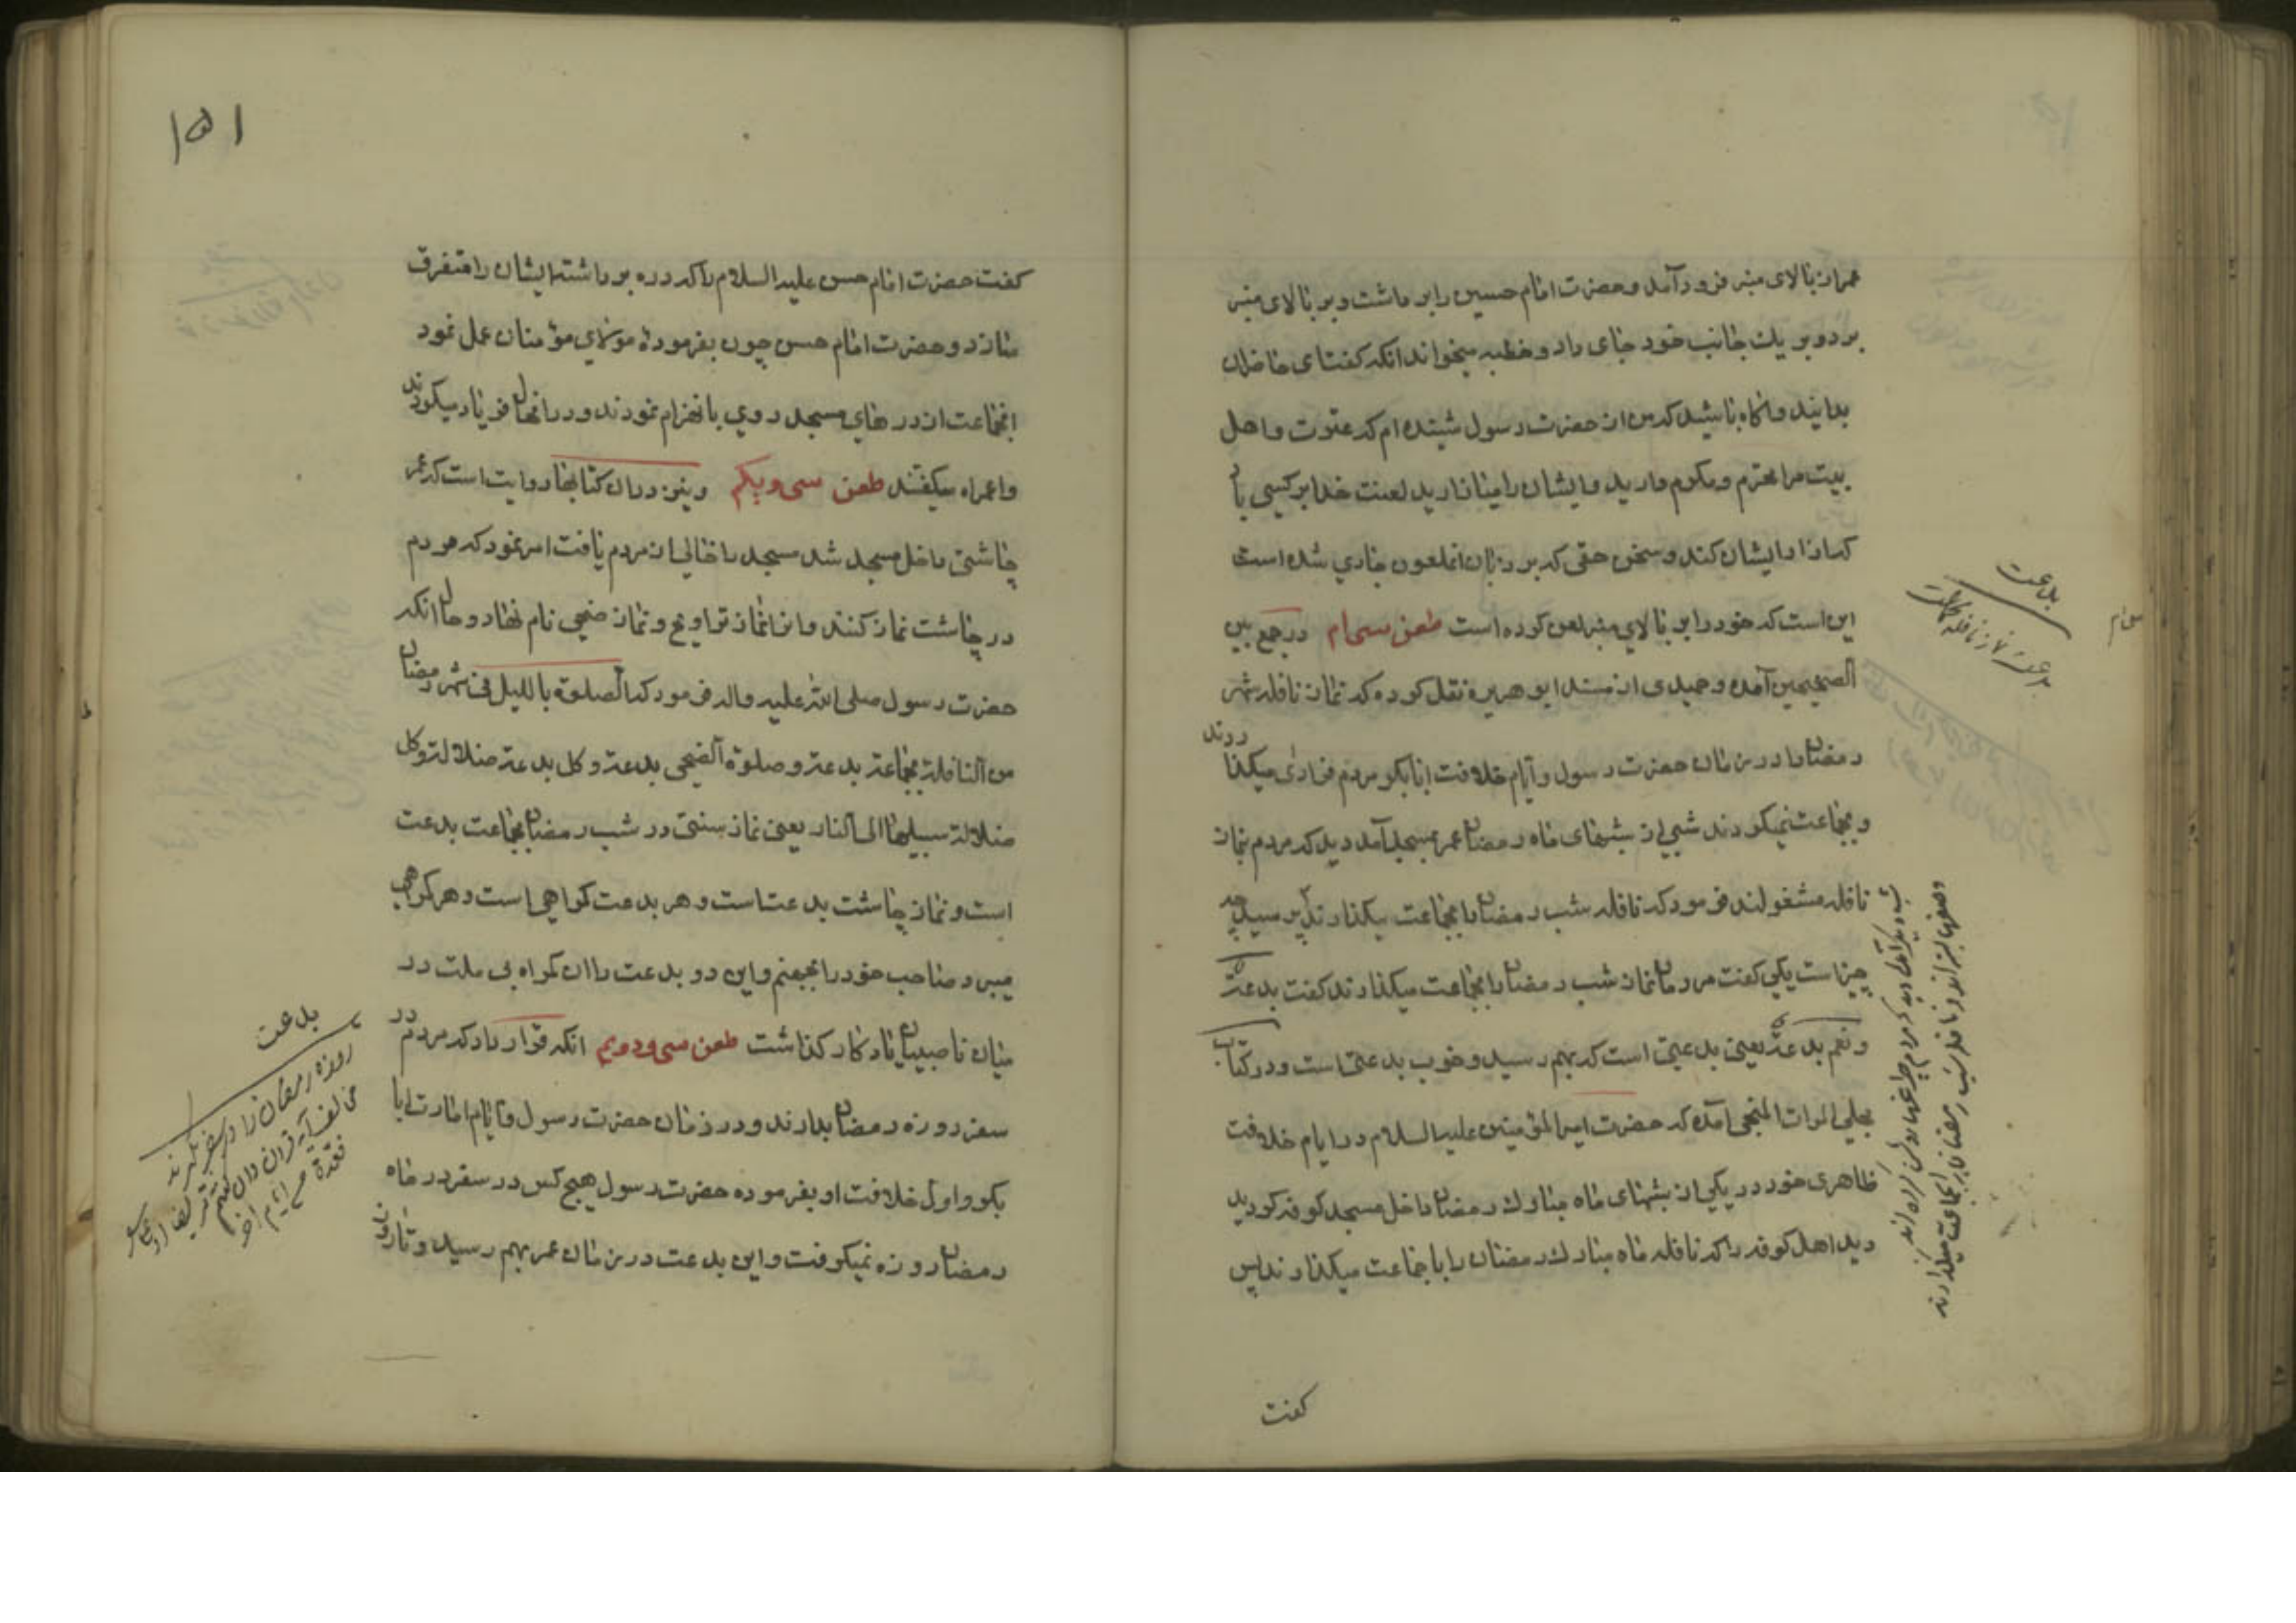 عمر از بالای منبر فرود آمد و حضرت امام حسین را برداشت و بر بالای منبر
برد و بر یك جانب خود جای داد و خطبه میخواند انکه گفت ای حاضران
بدانید و اگاه باشید که من از حضرت رسول شنیده ام که عترت و اهل
بیت مرا محترم و مکرم دارید و ایشان را میازارید لعنت خدا بر کسی باد
که اذا ایشان کند و سخن حقی که بر زبان انملعون جاری شده است
این است که خود را بر بالای منبر لعن کرده است طعن سی‌ام در جمع بین
الصحیحین آمده و حمیدی از مسند ابو هریره نقل کرده که نماز نافله شهر
رمضان را در زمان حضرت رسول و ایام خلافت ابابکر مردم فرادی میکذاردند
و بجماعت نمیکردند شبی از شبهای ماه رمضان عمر بمسجد آمد دید که مردم بنماز
نافله مشغولند فرمود که نافله شب رمضان را بجماعت بکذارند پرسید چه
چیز است یکی گفت مردمان نماز شب رمضان را بجماعت میکذارند گفت بدعة
و نعم بدعة یعنی بدعتی است که بهم رسید و خوب بدعتی است و در کتاب
مجلی المرات المنجی آمده که حضرت امیر المؤمنین علیه السلام در ایام خلافت
ظاهری خود در یکی از شبهای ماه مبارك رمضان داخل مسجد کوفه کردید
دید اهل کوفه را که نافله ماه مبارك رمضان را با جماعت میکذارند پس
بدعت
شب دیگر آمد دید که مردم چراغها روشن کرده اند
وصفها بسته اند و نافله شب رمضان را بجماعت میگذارند
گفت
۱۵۱
گفت حضرت امام حسن علیه السلام را که دره برداشته ایشان را متفرق
سازد و حضرت امام حسن چون بفرمودهٔ مولای مؤمنان عمل نمود
انجماعت از در های مسجد روی بانهزام نمودند و در انحال فریاد میکردند
واعمراه میکفتند طعن سی و یکم و نیز در ان کتابها روایت است که عمر
چاشتی داخل مسجد شد مسجد را خالی از مردم یافت امر نمود که مردم
در چاشت نماز کنند و انرا نماز تراویح و نماز ضحی نام نهاد و حال انکه
حضرت رسول صلی الله علیه واله فرمود که الصلوة باللیل فی شهر رمضان
من النافلة بجماعة بدعة و صلوة الضحی بدعة و کل بدعة ضلالة و کل
ضلالة سبیلها الی النار یعنی نماز سنتی در شب رمضان بجماعت بدعت
است و نماز چاشت بدعت است و هر بدعت کمراهی است و هر کمراهی
میبرد صاحب خود را بجهنم و این دو بدعت را ان کمراه بی ملت در
میان ناصبیان یادکار کذاشت طعن سی و دویم انکه قرار داد که مردم در
سفر روزه رمضان بدارند و در زمان حضرت رسول و ایام امارت ابا
بکر و اول خلافت او بفرموده حضرت رسول هیچ کس در سفر در ماه
رمضان روزه نمیکرفت و این بدعت در زمان عمر بهم رسید و تا
بدعت
روزه رمضان را در سفر بگیرند